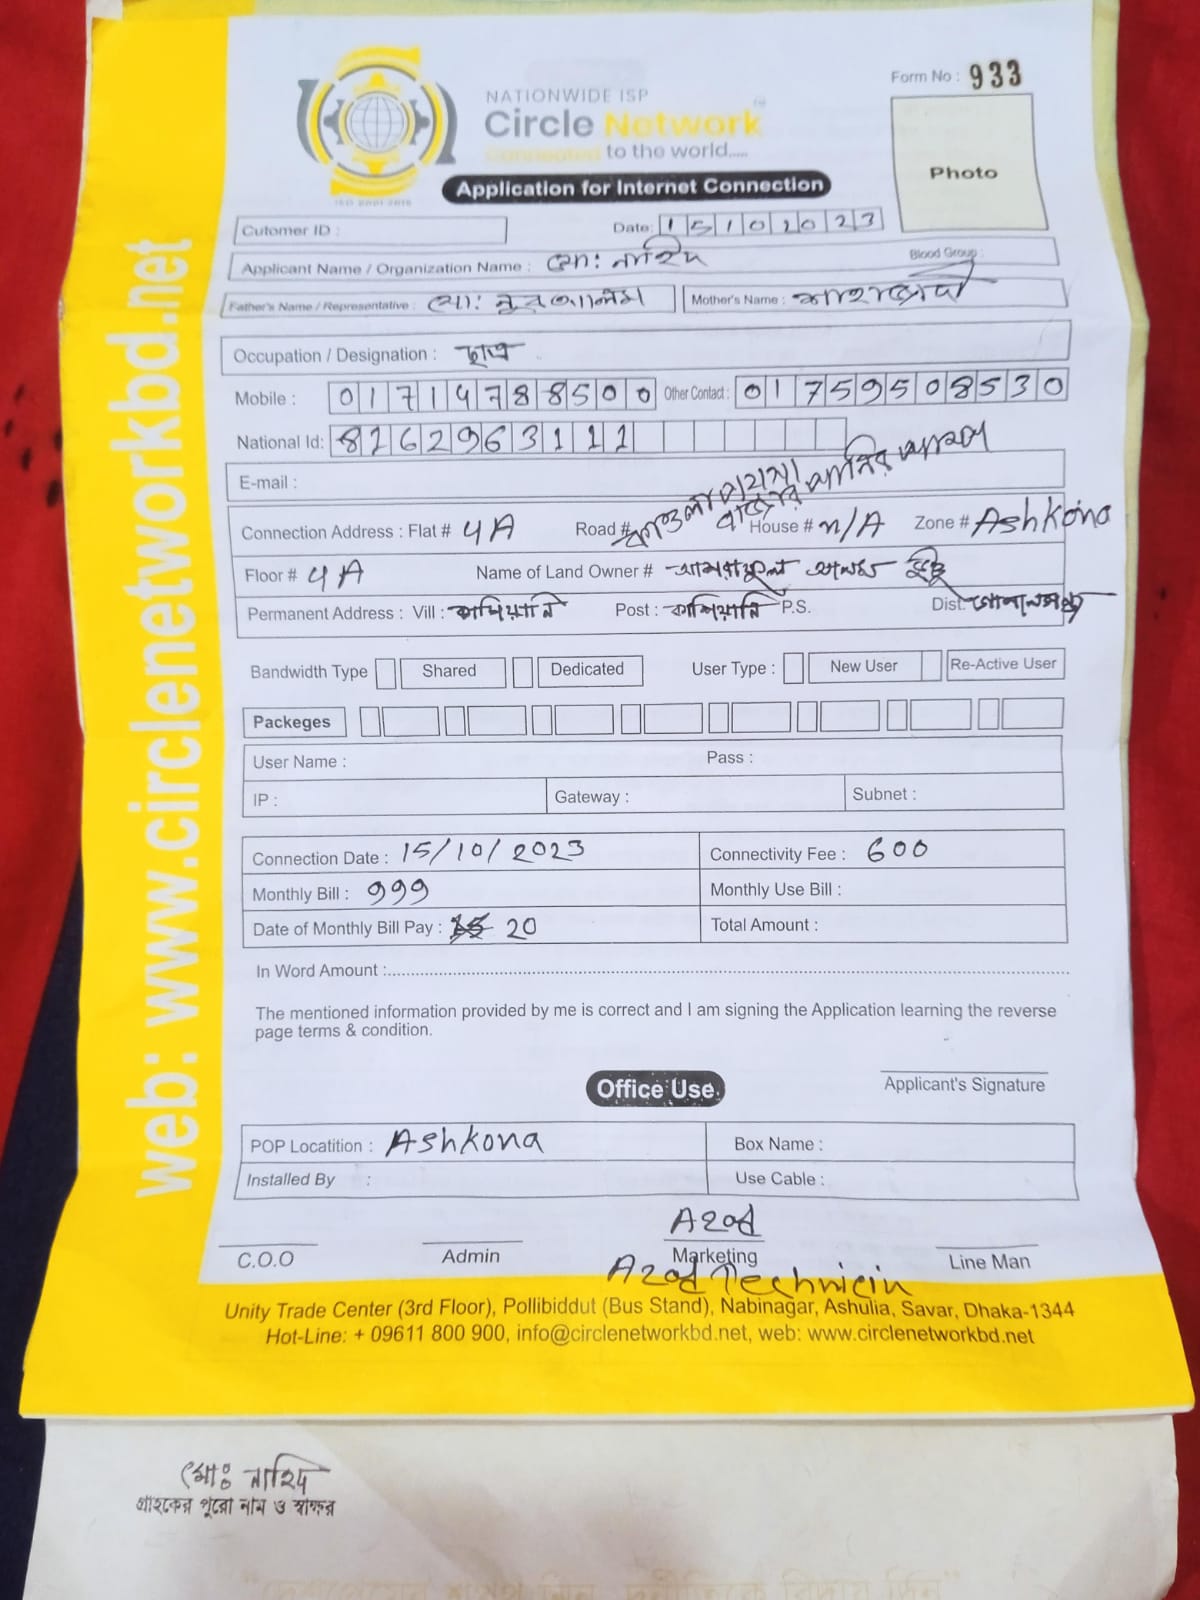 Form No : 933
NATIONWIDE ISP
Circle Network
Connected to the world.....
ISO 9001:2015
Photo
Application for Internet Connection
Cutomer ID :
Date: 15102023
Applicant Name / Organization Name : মো: নাহিদ
Blood Group :
Father's Name / Representative : মো: নুর আলম Mother's Name :
Occupation / Designation : ছাত্র
Mobile : 01714788500 Other Contact : 01759508530
National Id: 8262963111
E-mail :
Connection Address : Flat # 4A Road # House # n/A Zone # Ashkona
Floor # 4A Name of Land Owner #
Permanent Address : Vill : কাশিয়ানি Post : কাশিয়ানি P.S. Dist: গোপালগঞ্জ
Bandwidth Type Shared Dedicated User Type : New User Re-Active User
Packeges
User Name : Pass :
IP : Gateway : Subnet :
Connection Date : 15/10/2023 Connectivity Fee : 600
Monthly Bill : 999 Monthly Use Bill :
Date of Monthly Bill Pay : 20 Total Amount :
In Word Amount :
The mentioned information provided by me is correct and I am signing the Application learning the reverse
page terms & condition.
Applicant's Signature
Office Use
POP Locatition : Ashkona Box Name :
Installed By : Use Cable :
Azad
C.O.O Admin Marketing Line Man
Azad Technicin
Unity Trade Center (3rd Floor), Pollibiddut (Bus Stand), Nabinagar, Ashulia, Savar, Dhaka-1344
Hot-Line: + 09611 800 900, info@circlenetworkbd.net, web: www.circlenetworkbd.net
web: www.circlenetworkbd.net
মোঃ নাহিদ
গ্রাহকের পুরো নাম ও স্বাক্ষর